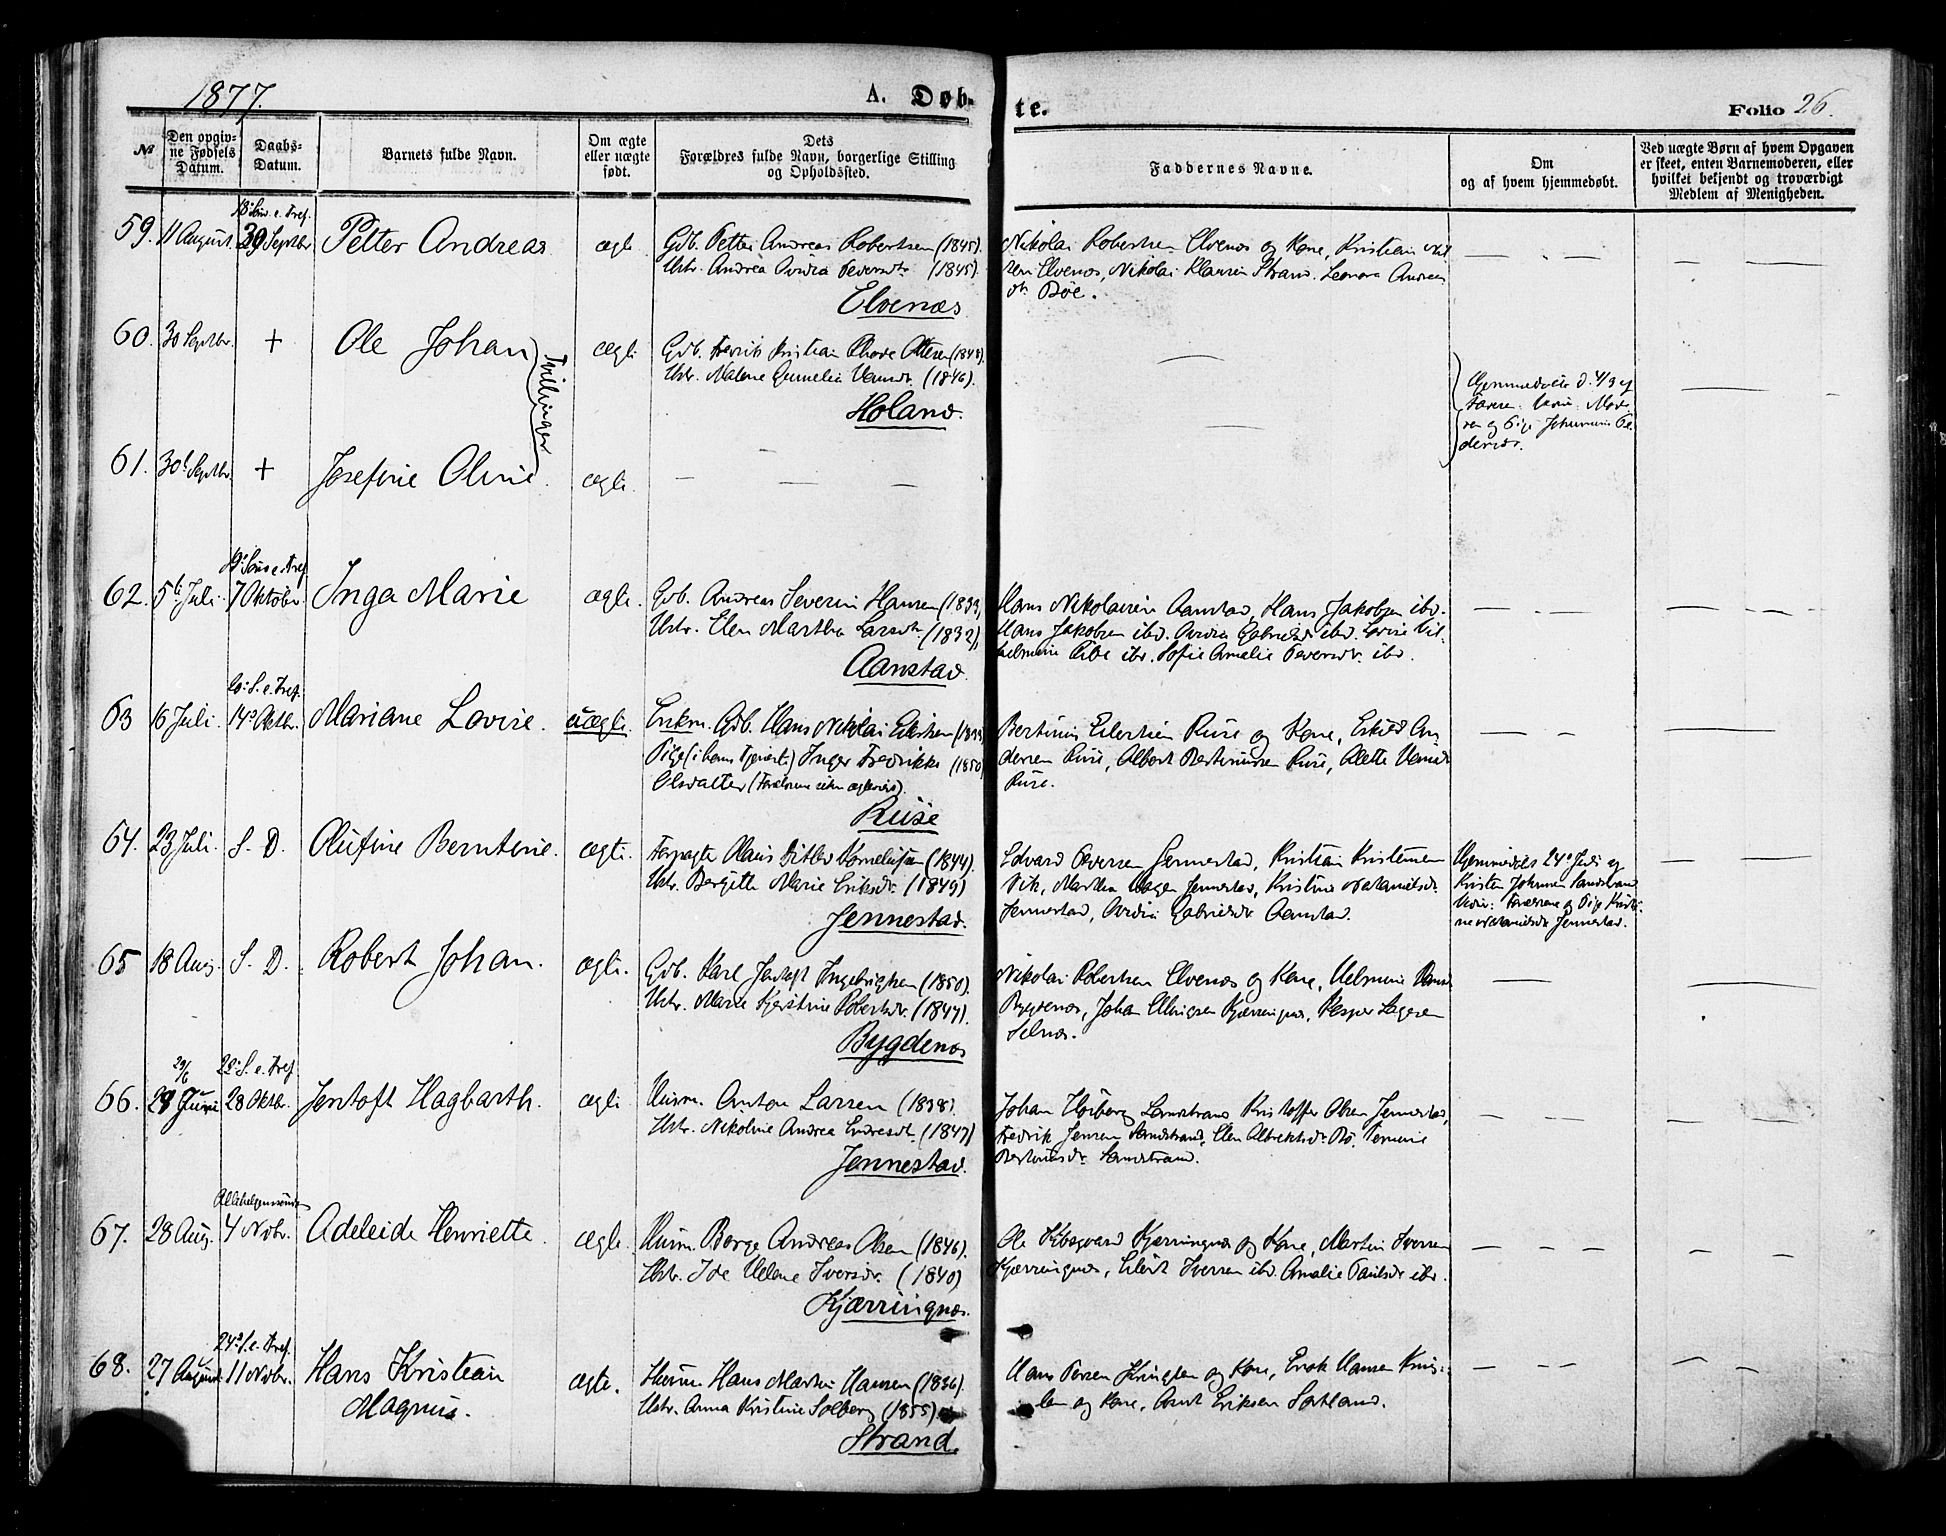 1877.
A. Døb-
te.
Folio 26.
№
Den opgiv-
ne Fødsels
Datum.
Daabs-
Datum.
Barnets fulde Navn.
Om ægte
eller uægte
født.
Dets
Forældres fulde Navn, borgerlige Stilling
og Opholdssted.
Faddernes Navne.
Om
og af hvem hjemmedøbt.
Ved uægte Børn af hvem Opgaven
er skeet, enten Barnemoderen, eller
hvilket bekjendt og troværdigt
Medlem af Menigheden.
59. 11 August. 30 Septbr. Petter Andreas ægte
18 Sønd. e. Tref.
Gdb. Petter Andreas Robertsen (1845).
Hstr. Andrea Pedersdtr. (1845).
Elvenæs
Nikolai Robertsen Elvenæs og Kone, Kristian
Elvenæs, Nikolai Klausen Strand. Leonora Andreas
dtr. Bøe.
60. 30 Septbr. + Ole Johan ægte
Tvillinger
Gdb. Fredrik Kristian Ottesen (1848).
Hstr. Malene Hansdtr. (1846).
Holand.
Hjemmedøbt d. 4/3 af
61. 30 Septbr. + Josefine Oline. ægte.
19 Sønd e. Tref
62. 5te Juli 7 Oktobr. Inga Marie ægte.
Gdb. Andreas Severin Hansen (1833)
Hstr. Elen Martha Larsdtr. (1832),
Aanstad.
Hans Nikolaisen Aanstad, Hans Jakobsen ibd.
Hans Jakobsen ibd. Gabrielsdtr. ibd. Lovise Vil-
helmine ibd. Sofie Amalie Pedersdtr. ibd.
20 S. e. Tref.
63 16 Juli. 14 Oktbr. Mariane Lovise. uægte.
Enkm. Gdb. Hans Nikolai Eilertsen
Pige (i hans Tjeneste) Inger Fredrikke (1850)
Olsdatter
Ruse
Bertinus Eilertsen Ruse og Kone, Eskild An-
dersen Ruse, Albert Bertinussen Ruse, Alette
Ruse.
64. 23 Juli. S. D. Olufine Berntine. ægte.
Forpagter Hans Ditlev Kornelius­sen (1844).
Hstr. Bergitte Marie Eriksdtr. (1849)
Jennestad.
Edvard Pedersen Jennestad, Kristian Kristensen
Vik, Martha Jennestad, Kristine Natanielsdtr.
Jennestad, Gabrielsdtr. Aanstad.
Hjemmedøbt 24 Juli af
Kristen Johnsen Sandstrand
Vidn: Forældrene og Pige Kristi-
ne Natanielsdtr. Jennestad.
65 18 Aug. S. D. Robert Johan. ægte.
Gdb. Karl Jentoft Ingebrigtsen (1850).
Hstr. Marie Kjerstine Robertsdtr. (1847).
Bygdenæs
Nikolai Robertsen Elvenæs og Kone,
Bygdenæs, Johan Ellingsen Kjærringnæs,
Selnæs.
29/6 22 S. e. Tref
66. 29 Juni 28 Oktbr. Jentoft Hagbarth. ægte
Husm. Anton Larsen (1838).
Hstr. Nikoline Andrea Endresdtr. (1847)
Jennestad.
Johan Høiberg Sandstrand Kristoffer Olsen Jennestad,
Fredrik Jensen Sandstrand, Elen Albrektsdtr.
Bertinusdtr. Sandstrand.
Allehelgensøndag
67. 28 Aug. 4 Novbr. Adeleide Henriette. ægte.
Husm. Borge Andreas Olsen (1846).
Hstr. Ide Helene Iversdtr. (1840)
Kjærringnæs.
Ole Kjærringnæs og Kone, Martin Iversen
Kjærringnæs, Eilert Iversen ibd. Amalie Paulsdtr. ibd.
24 S. e. Tref.
68. 27 August 11 Novbr. Hans Kristian ægte.
Magnus.
Husm. Hans Martin Hansen (1836).
Hstr. Anna Kristine Solberg (1855)
Strand.
Hans Persen Kringlen og Kone, Erik Hansen Kring-
len og Kone, Eriksen Sortland.